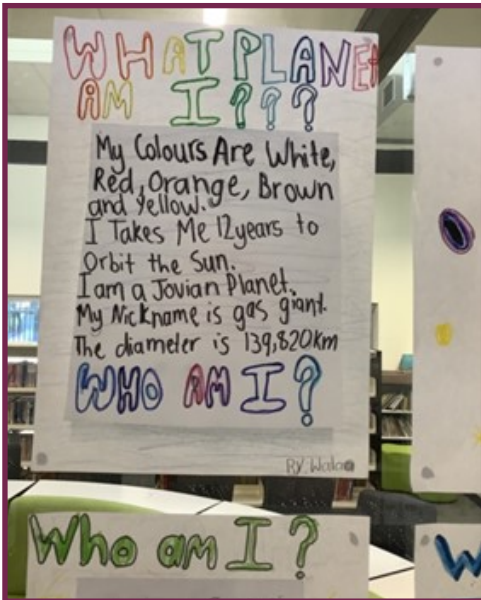 WHAT PLANET
AM I???
My Colours Are White,
Red, Orange, Brown
and Yellow.
I Takes Me 12 years to
Orbit the Sun.
I am a Jovian Planet.
My Nickname is gas giant.
The diameter is 139,820km
WHO AM I?
By. Walaa
Who am I?
W